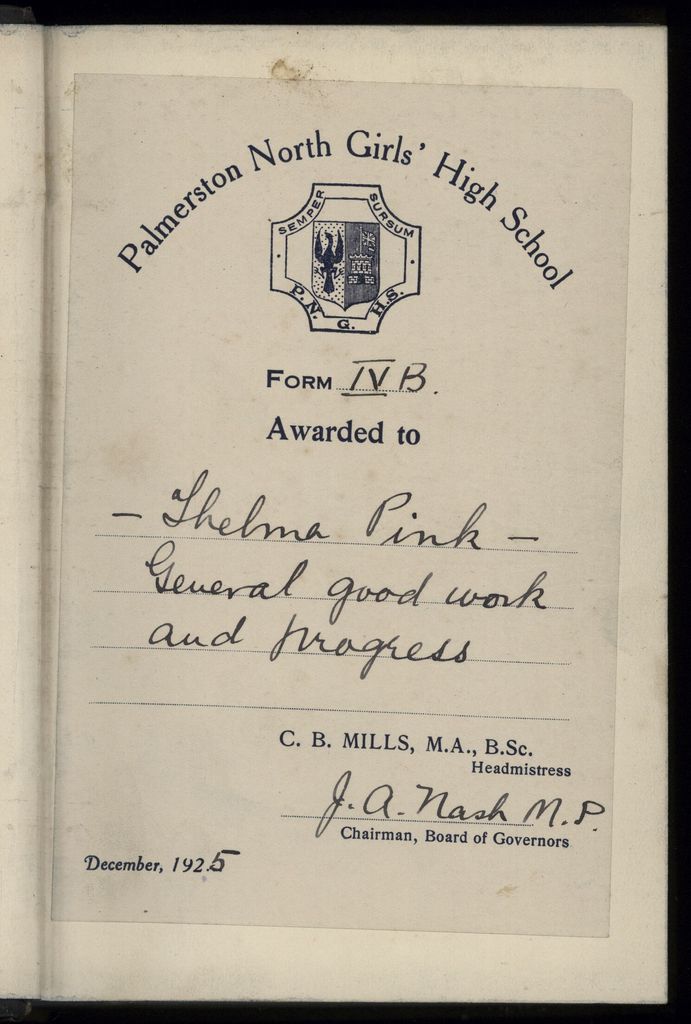 Palmerston North Girls' High School
SEMPER SURSUM
P. N. G. H.S.
FORM IV B.
Awarded to
- Thelma Pink -
General good work
and progress
C. B. MILLS, M.A., B.Sc.
Headmistress
J. A. Nash M.P.
Chairman, Board of Governors
December, 1925